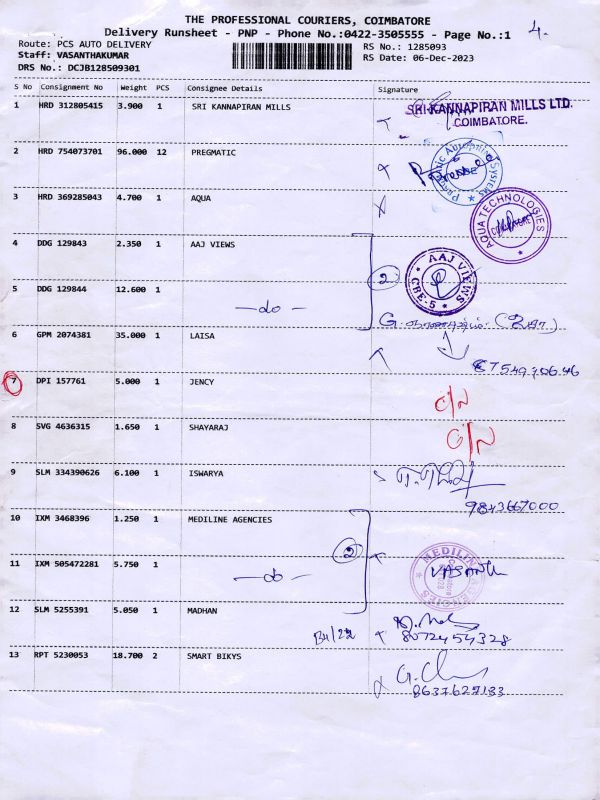 THE PROFESSIONAL COURIERS, COIMBATORE
Delivery Runsheet - PNP - Phone No.:0422-3505555 - Page No.:1
4.
Route: PCS AUTO DELIVERY
RS No.: 1285093
Staff: VASANTHAKUMAR
RS Date: 06-Dec-2023
DRS No.: DCJB128509301
S No Consignment No Weight PCS Consignee Details Signature
1 HRD 312805415 3.900 1 SRI KANNAPIRAN MILLS
SRI KANNAPIRAN MILLS LTD.
COIMBATORE.
2 HRD 754073701 96.000 12 PREGMATIC
3 HRD 369285043 4.700 1 AQUA
AQUA TECHNOLOGIES
4 DDG 129843 2.350 1 AAJ VIEWS
2
AAJ VIEWS
CBE-5
5 DDG 129844 12.600 1
-do-
6 GPM 2074381 35.000 1 LAISA
7 DPI 157761 5.000 1 JENCY
C/N
8 SVG 4636315 1.650 1 SHAYARAJ
C/N
9 SLM 334390626 6.100 1 ISWARYA
9843667000
10 IXM 3468396 1.250 1 MEDILINE AGENCIES
2
11 IXM 505472281 5.750 1
-do-
MEDILINE AGENCIES
VASANTH
12 SLM 5255391 5.050 1 MADHAN
8072454328
13 RPT 5230053 18.700 2 SMART BIKYS
8637627133